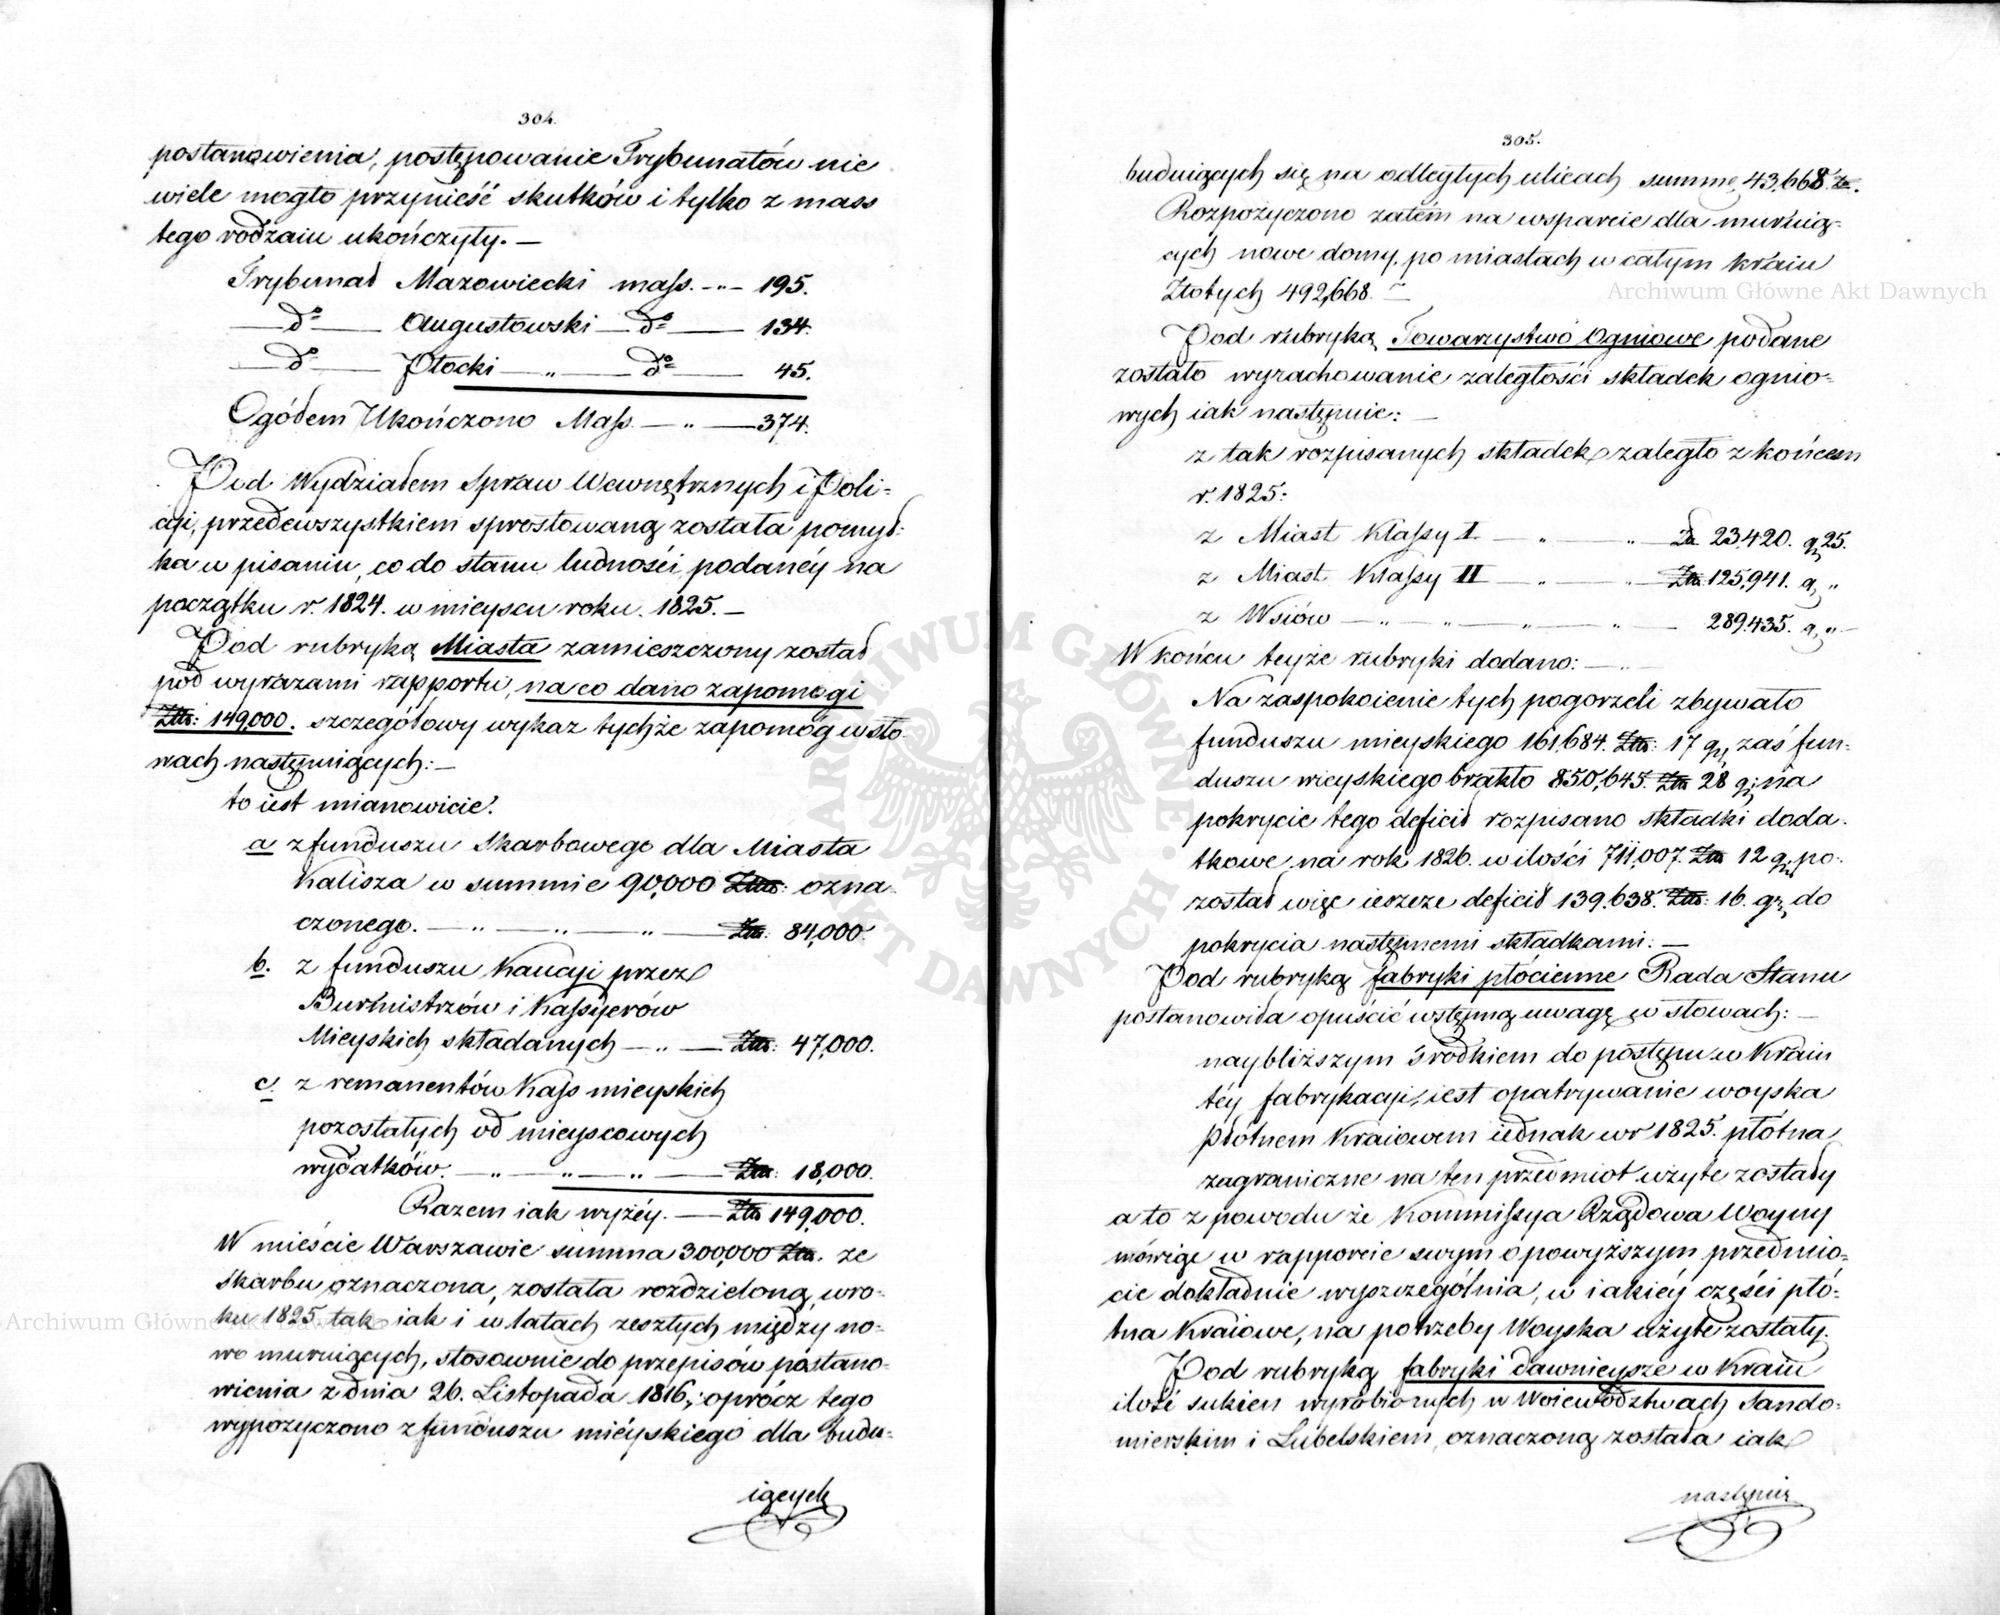 304.
postanowienia, postępowanie Trybunałów nie
wiele mogło przynieść skutków i tylko z mass
tego rodzaiu ukończyły. —
Trybunał Mazowiecki mass. -„- 195.
— do — Augustowski — do — 134.
— do — Płocki — „ — do — 45.
Ogółem Ukończono Mass — „ — 374.
Pod Wydziałem Spraw Wewnętrznych i Poli=
cyi, przedewszystkiem sprostowaną została pomył=
ka w pisaniu, co do stanu ludności podanéy na
początku r. 1824. w mieyscu roku. 1825. —
Pod rubryką Miasta zamieszczony został
pod wyrazami rapportu, na co dano zapomogi
Złtt: 149,000. szczegółowy wykaz tychże zapomóg w sło-
wach następuiących: —
to iest mianowicie:
a z funduszu Skarbowego dla Miasta
Kalisza w summie 90,000 Złtt: ozna-
czonego. — „ — „ — „ — Złt: 84,000.
b. z funduszu Kaucyi przez
Burmistrzów i Kassyerów
Mieyskich składanych — „ — Złt: 47,000.
c. z remanentów Kass mieyskich
pozostałych od mieyscowych
wydatków. — „ — „ — „ — Złt: 18,000.
Razem iak wyżéy. — Złt 149,000.
W mieście Warszawie summa 300,000 Złt. ze
Skarbu oznaczona, została rozdzieloną, w ro-
ku 1825 tak iak i w latach zeszłych między no-
wo muruiących, stosownie do przepisów postano-
wienia z dnia 26. Listopada 1816; oprócz tego
wypożyczono z funduszu miéyskiego dla budu-
iących
305.
buduiących się na odległych ulicach summę 43,668. Zł.
Rozpożyczono zatém na wsparcie dla muruią-
cych nowe domy po miastach w całym kraiu
Złotych 492,668. —
Pod rubryką Towarzystwo Ogniowe podane
zostało wyrachowanie zaległości składek ognio-
wych iak następuie: —
z tak rozpisanych składek zaległo z końcem
r. 1825:
z Miast Klassy I — „ — „ Zł. 23,420. gr. 25.
z Miast Klassy II — „ — „ Złt. 125,941. gr. „
z Wsiów — „ — „ — „ — „ — 289,435. gr. „ —
W końcu teyże rubryki dodano: — „ —
Na zaspokoienie tych pogorzeli zbywało
funduszu mieyskiego 161,684. Złt: 17 gr, zaś fun-
duszu wieyskiego brakło 850,645. Złt 28 gr; na
pokrycie tego deficit rozpisano składki doda-
tkowe na rok 1826. w ilości 711,007. Złt 12 gr, po-
został więc ieszcze deficit 139,638. Złt: 16. gr, do
pokrycia następnemi składkami. —
Pod rubryką fabryki płócienne Rada Stanu
postanowiła opuścić wstępną uwagę w słowach: —
naybliższym środkiem do postępu w Kraiu
téy fabrykacyi, iest opatrywanie woyska
płótnem Kraiowem iednak w r 1825. płótna
zagraniczne na ten przedmiot użyte zostały
a to z powodu że Kommissya Rządowa Woyny
mówiąc w rapporcie swym o powyższym przedmio-
cie dokładnie wyszczególnia, w iakiéy części płó-
tna Kraiowe, na potrzeby Woyska użyte zostały.
Pod rubryką fabryki dawnieysze w Kraiu
ilość sukien wyrobionych w Woiewództwach Sando-
mierskim i Lubelskiem, oznaczoną została iak
następuie
ARCHIWUM GŁÓWNE AKT DAWNYCH
Archiwum Główne Akt Dawnych
Archiwum Główne Akt Dawnych